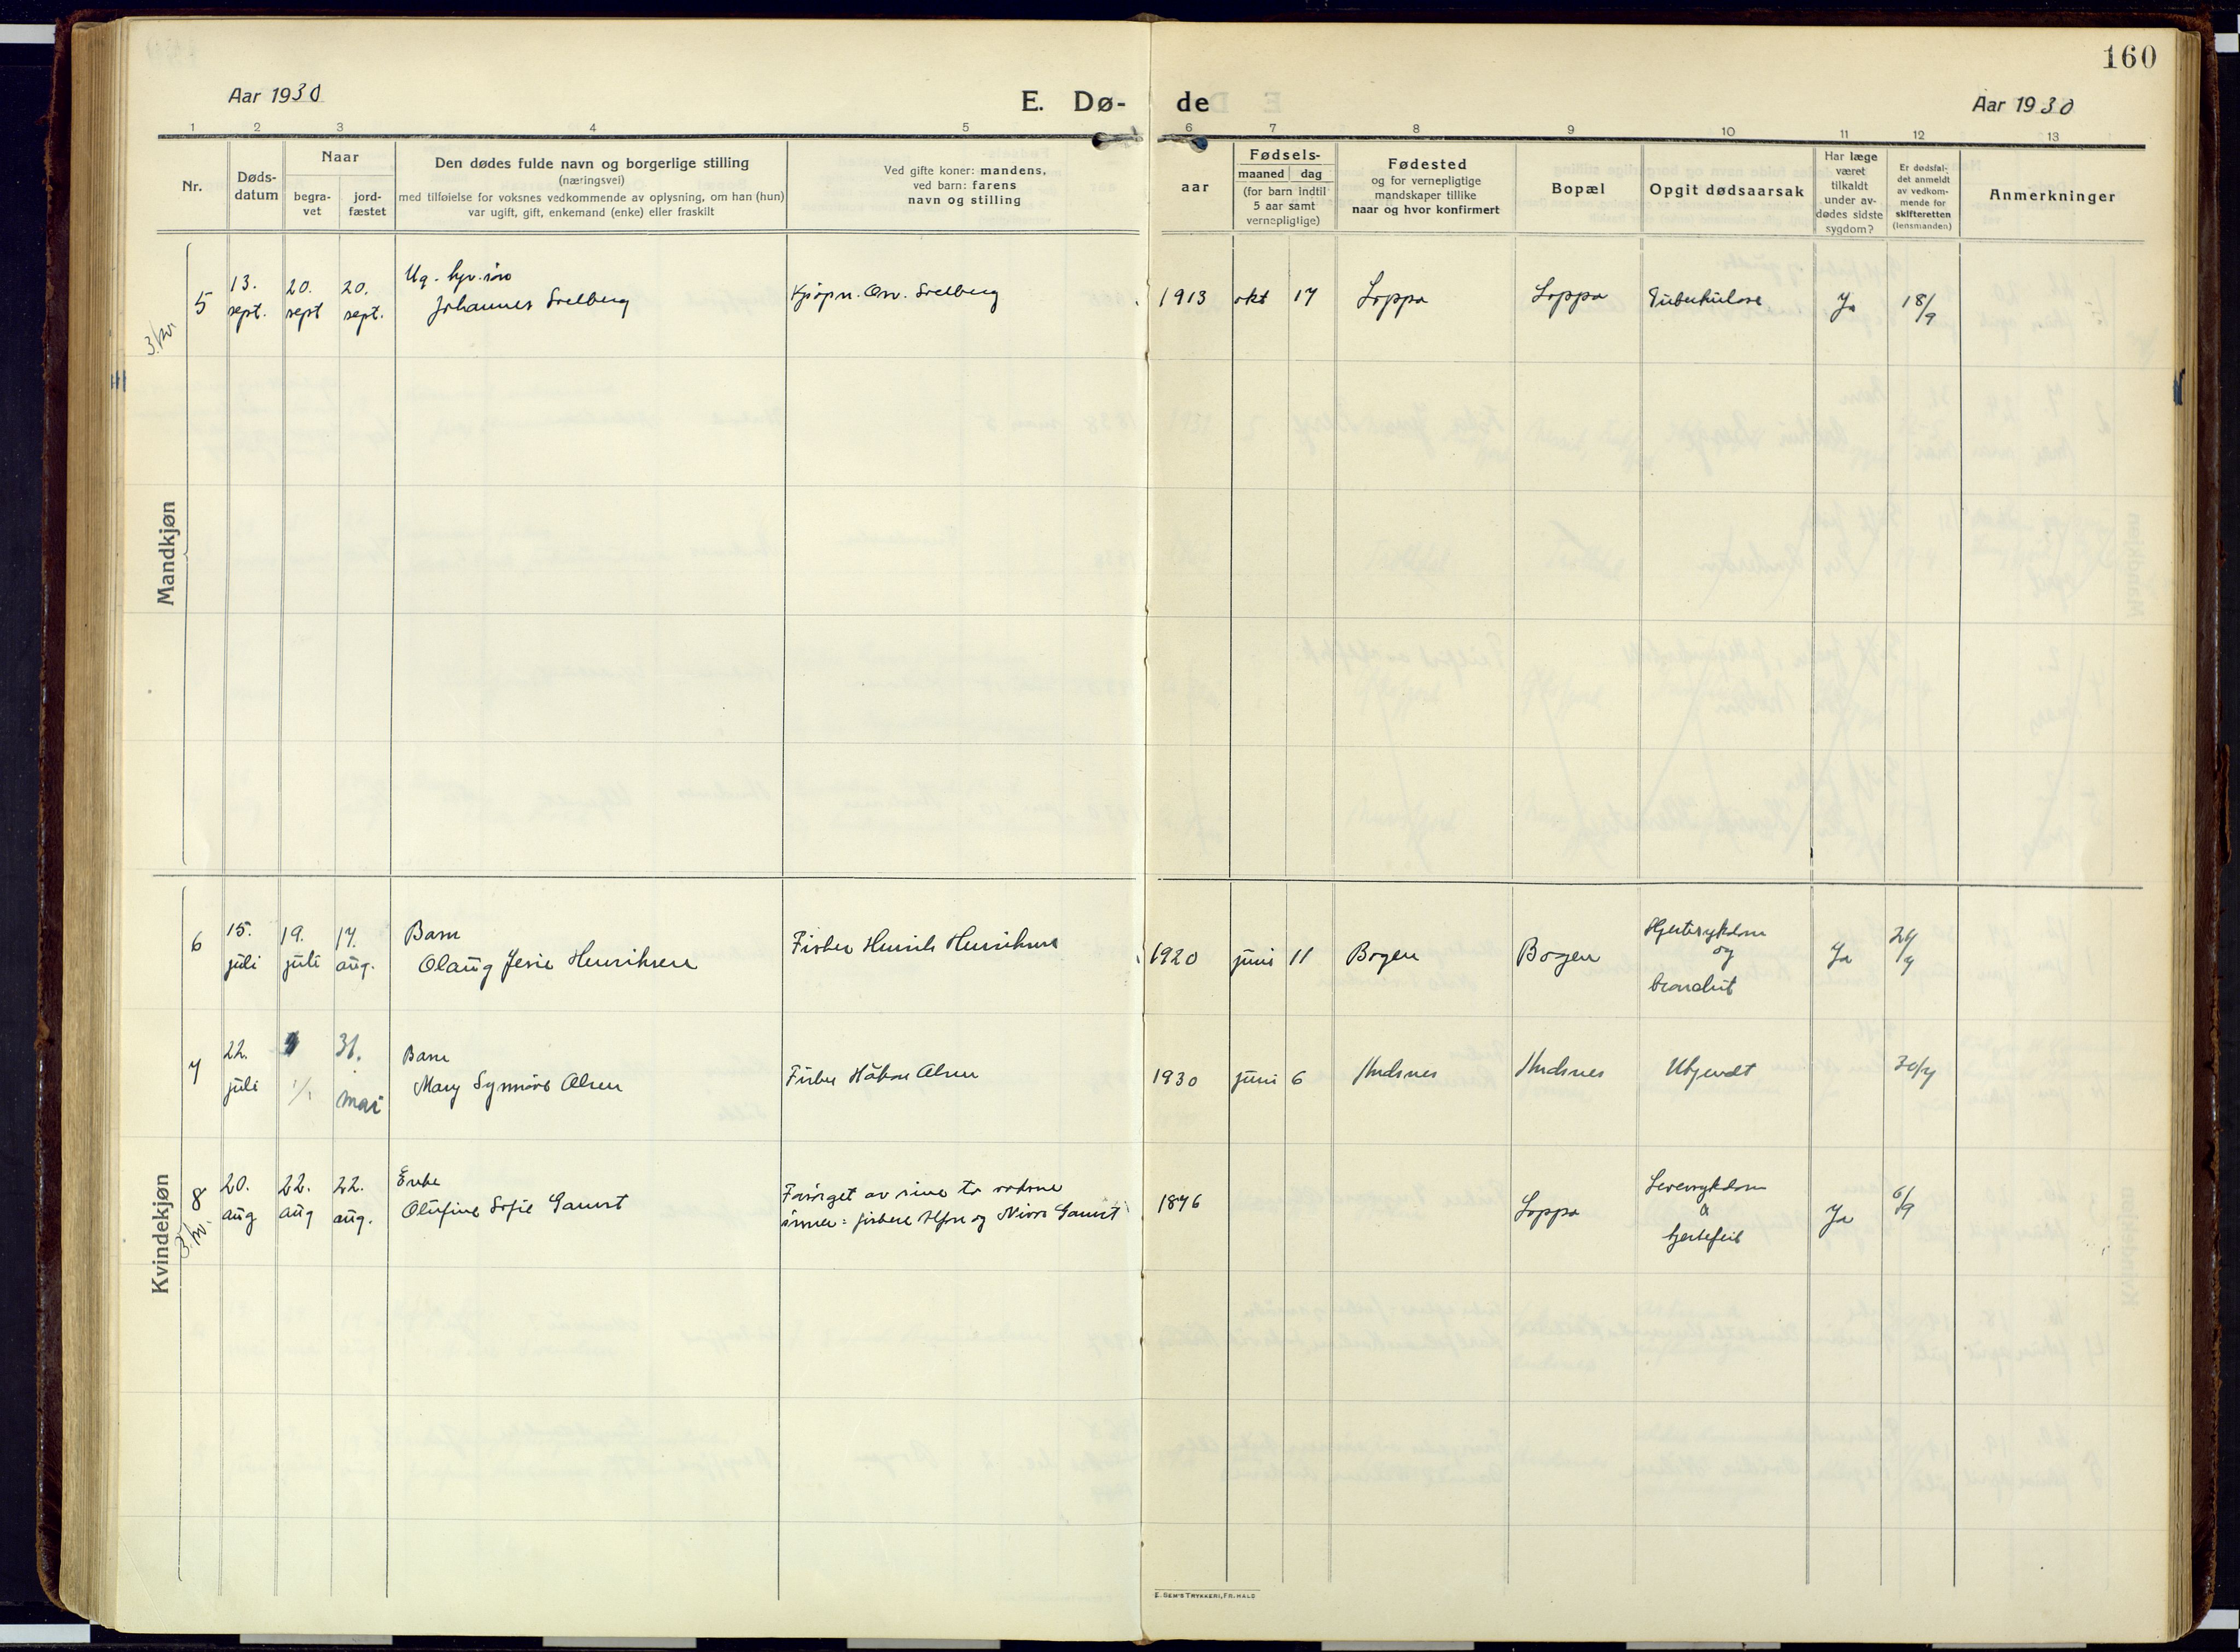 160
Aar 1930
E. Dø- de
Aar 1930
1 2 3 4 5 6 7 8 9 10 11 12 13
Nr.
Døds-
datum
Naar
begra-
vet
jord-
fæstet
Den dødes fulde navn og borgerlige stilling
(næringsvei)
med tilføielse for voksnes vedkommende av oplysning, om han (hun)
var ugift, gift, enkemand (enke) eller fraskilt
Ved gifte koner: mandens,
ved barn: farens
navn og stilling
aar
Fødsels-
maaned dag
(for barn indtil
5 aar samt
vernepligtige)
Fødested
og for vernepligtige
mandskaper tillike
naar og hvor konfirmert
Bopæl
Opgit dødsaarsak
Har læge
været
tilkaldt
under av-
dødes sidste
sygdom?
Er dødsfal-
det anmeldt
av vedkom-
mende for
skifteretten
(lensmanden)
Anmerkninger
Mandkjøn
5
13.
sept.
20.
sept
20.
sept.
Ug.
Johannes Solberg
Kjøpm. Solberg
1913 okt 17 Loppa Loppa Tuberkulose Ja 18/9
Kvindekjøn
6
15.
juli
19.
juli
17.
aug.
Barn
Olaug Jenie Henriksen
Fisker Henrik Henriksen
1920 juni 11 Bogen Bogen
Hjertesykdom
og
Ja
7
22.
juli
31.
mai
Barn
Mary Synnøve Olsen
Fisker Håkon Olsen
1930 juni 6 Andsnes Andsnes Ukjendt 30/7
8
20.
aug
22.
aug
22.
aug.
Enke
Olufine Sofie Gamst
Forsørget av sine to voksne
sønner: fiskere og Gamst
1876 Loppa
Leversykdom
&
hjertefeil
Ja 6/9
E. SEM'S TRYKKERI, FR.HALD